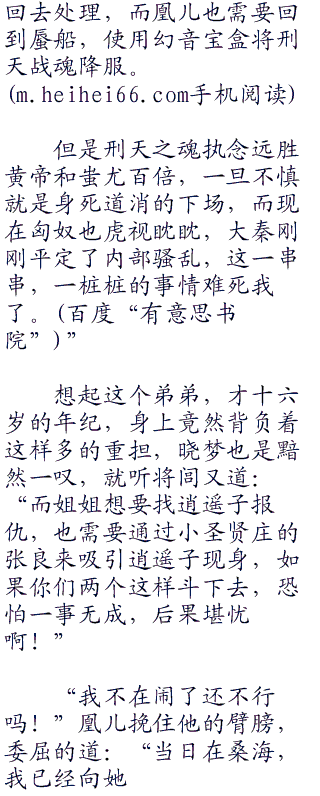 回去处理，而凰儿也需要回
到蜃船，使用幻音宝盒将刑
天战魂降服。
(m.heihei66.com手机阅读)
但是刑天之魂执念远胜
黄帝和蚩尤百倍，一旦不慎
就是身死道消的下场，而现
在匈奴也虎视眈眈，大秦刚
刚平定了内部骚乱，这一串
串，一桩桩的事情难死我
了。(百度“有意思书
院”)”
想起这个弟弟，才十六
岁的年纪，身上竟然背负着
这样多的重担，晓梦也是黯
然一叹，就听将闾又道：
“而姐姐想要找逍遥子报
仇，也需要通过小圣贤庄的
张良来吸引逍遥子现身，如
果你们两个这样斗下去，恐
怕一事无成，后果堪忧
啊！”
“我不在闹了还不行
吗！”凰儿挽住他的臂膀，
委屈的道：“当日在桑海，
我已经向她